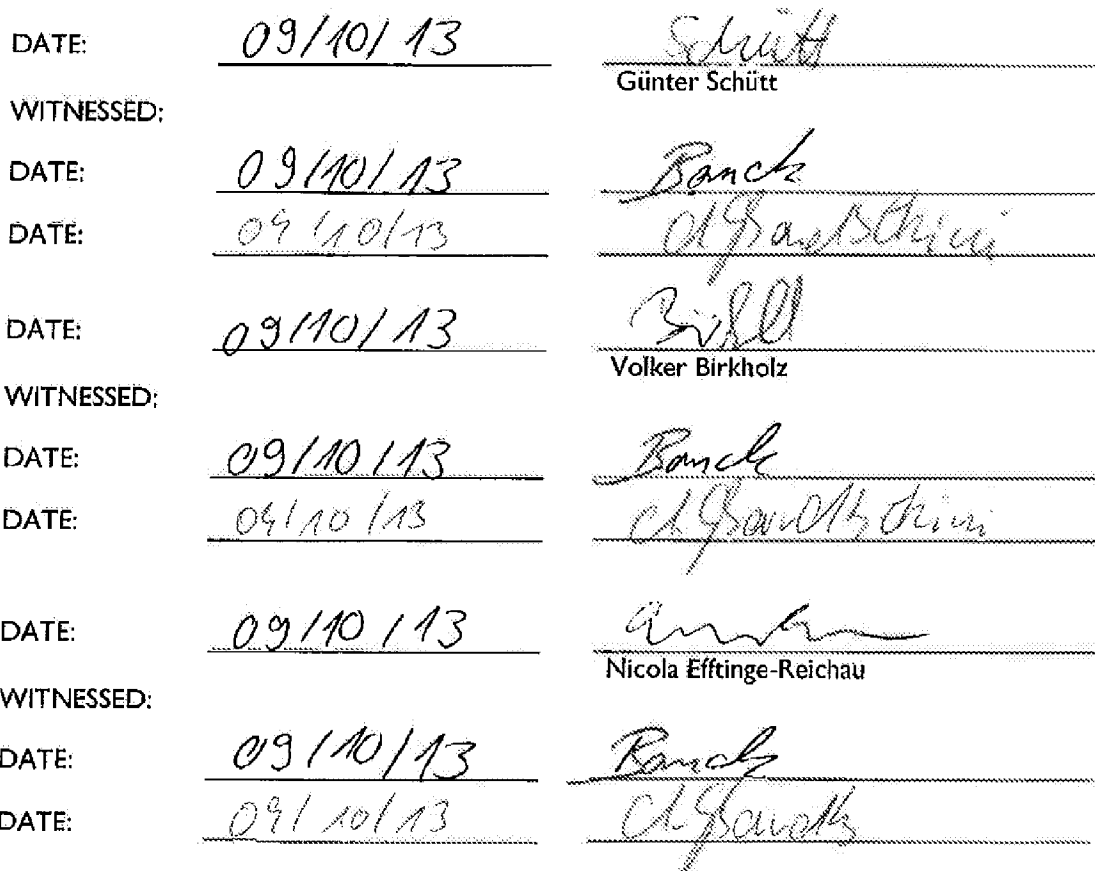 DATE: 09/10/13 Schütt
Günter Schütt
WITNESSED:
DATE: 09/10/13 Banck
DATE: 09/10/13
DATE: 09/10/13
Volker Birkholz
WITNESSED:
DATE: 09/10/13 Banck
DATE: 09/10/13
DATE: 09/10/13
Nicola Efftinge-Reichau
WITNESSED:
DATE: 09/10/13 Banck
DATE: 09/10/13